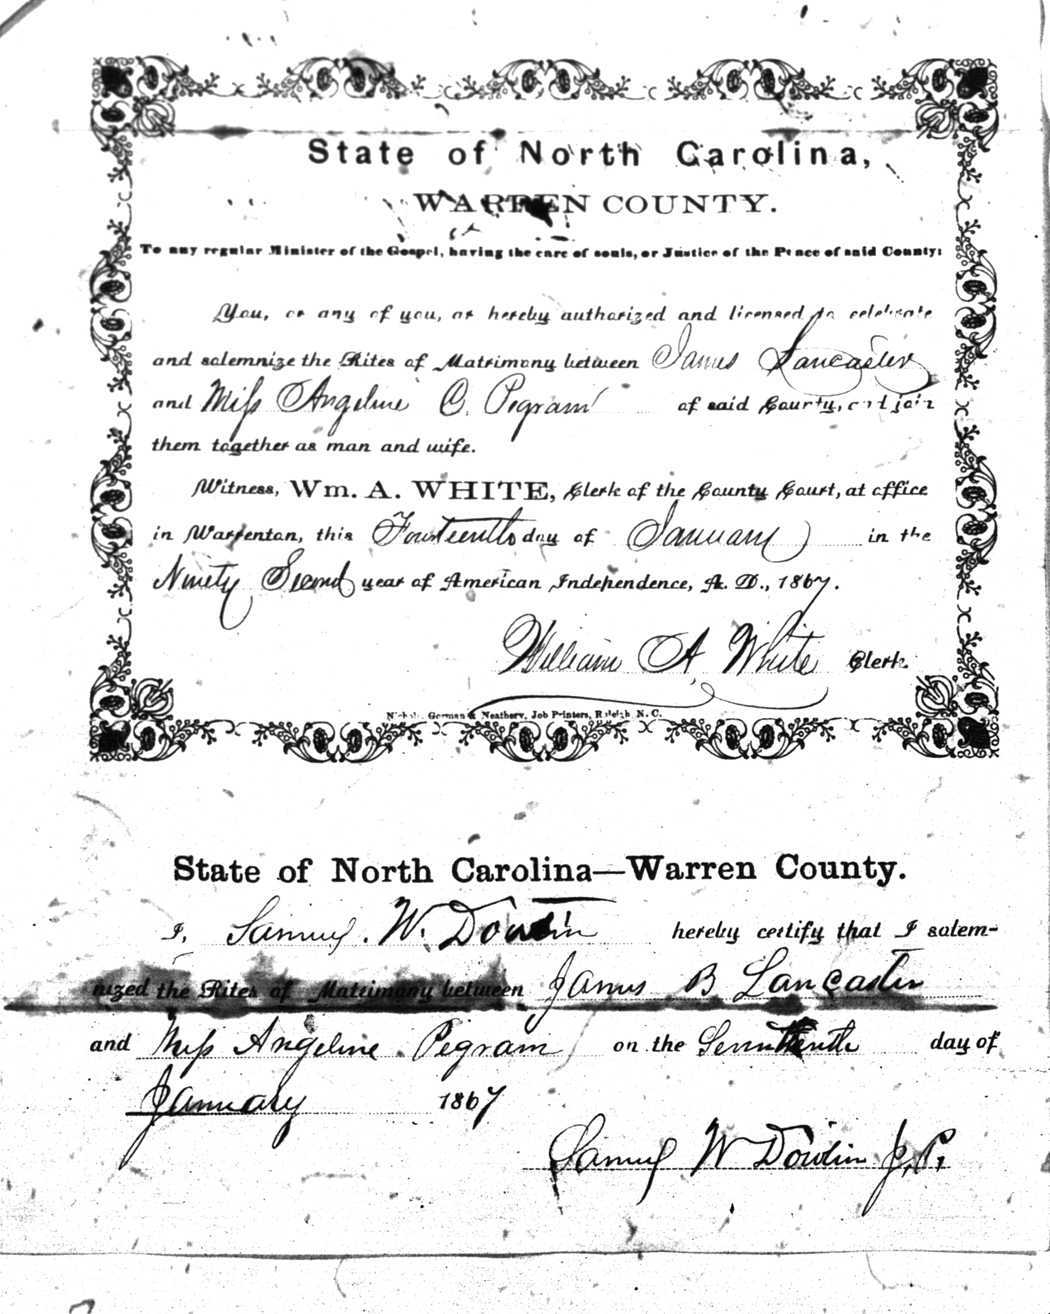 State of North Carolina,
WARREN COUNTY.
To any regular Minister of the Gospel, having the care of souls, or Justice of the Peace of said County:
You, or any of you, are hereby authorized and licensed to celebrate
and solemnize the Rites of Matrimony between James Lancaster
and Miss Angeline C. Pegram of said County, and join
them together as man and wife.
Witness, Wm. A. WHITE, Clerk of the County Court, at office
in Warrenton, this Fourteenth day of January in the
Ninety Second year of American Independence, A. D., 1867.
William A. White Clerk.
Nichols, Gorman & Neathery, Job Printers, Raleigh, N. C.
State of North Carolina—Warren County.
I, Samuel W. Dowtin hereby certify that I solem-
nized the Rites of Matrimony between James B Lancaster
and Miss Angeline Pegram on the Seventeenth day of
January 1867
Samuel W Dowtin J. P.